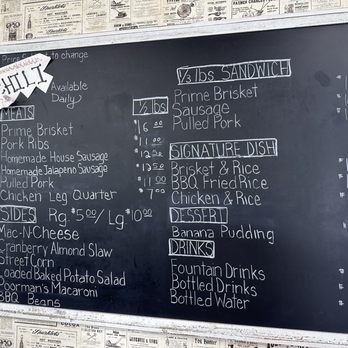 to change
CHILI
Available
Daily
MEATS ½ lbs
Prime Brisket $16.00
Pork Ribs $11.00
Homemade House Sausage $12.50
Homemade Jalapeño Sausage $12.50
Pulled Pork $11.00
Chicken Leg Quarter $7.00
SIDES Rg $5.00/ Lg $10.00
Mac-N-Cheese
Cranberry Almond Slaw
Street Corn
Loaded Baked Potato Salad
Poorman's Macaroni
BBQ Beans
⅓ lbs SANDWICH
Prime Brisket
Sausage
Pulled Pork
SIGNATURE DISH
Brisket & Rice
BBQ Fried Rice
Chicken & Rice
DESSERT
Banana Pudding
DRINKS
Fountain Drinks
Bottled Drinks
Bottled Water